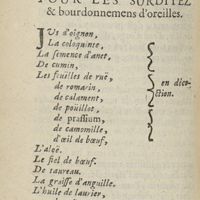 POUR LES SURDITEZ
& bourdonnemens d'oreilles.
JUs d'oignon,
La coloquinte,
La semence d'anet,
De cumin,
Les fueilles de ruë,
de romarin,
de calament,
de pouillot,
de prassium,
de camomille,
d'œil de bœuf,
en decoction.
L'aloë.
Le fiel de bœuf.
De taureau.
La graisse d'anguille.
L'huile de laurier,